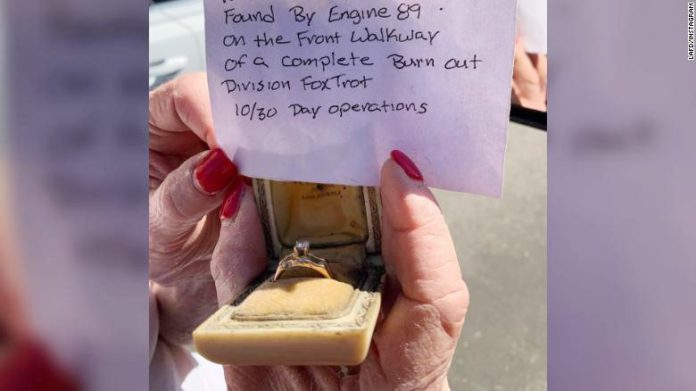 Found By Engine 89.
on the Front Walkway
of a complete Burn out
Division FoxTrot
10/30 Day operations
LAFD/INSTAGRAM
CNN